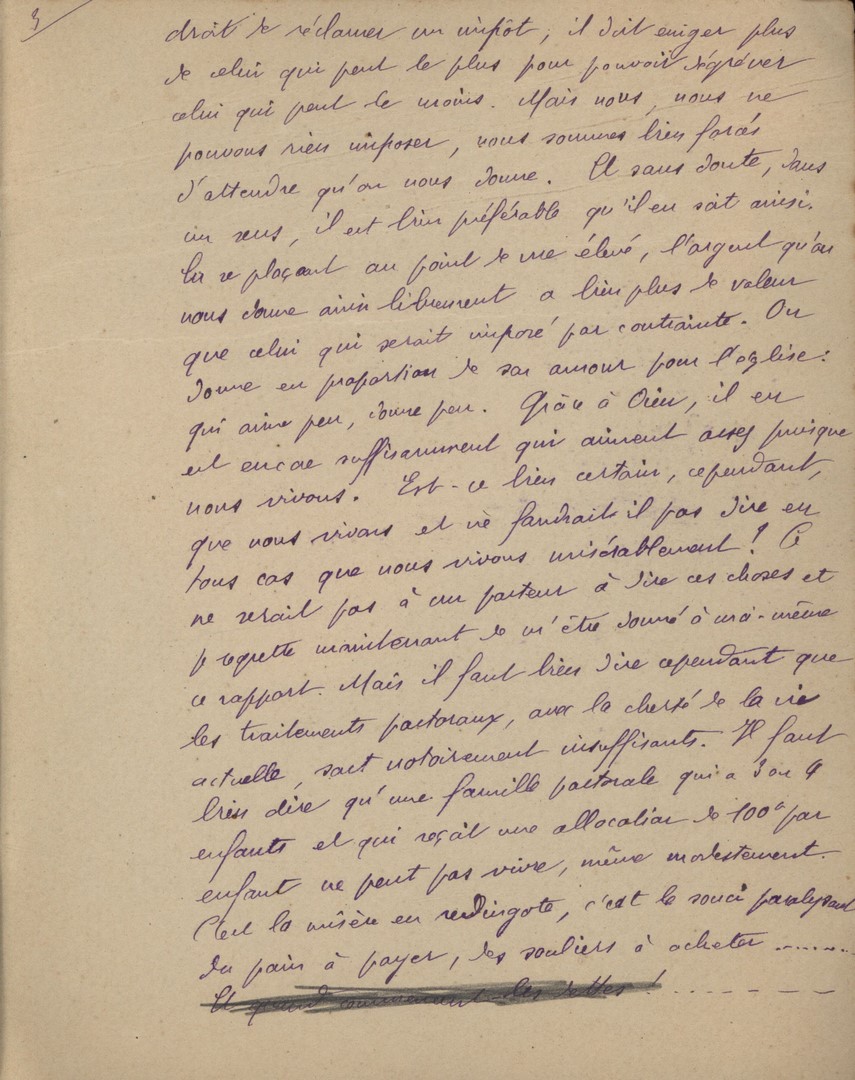 3
droit de réclamer un impôt, il doit exiger plus
de celui qui peut le plus pour pouvoir dégréver
celui qui peut le moins. Mais nous, nous ne
pouvons rien imposer, nous sommes bien forcés
d'attendre qu'on nous donne. Et sans doute, dans
un sens, il est bien préférable qu'il en soit ainsi.
En se plaçant au point de vue élevé, l'argent qu'on
nous donne ainsi librement a bien plus de valeur
que celui qui serait imposé par contrainte. On
donne en proportion de son amour pour l'église :
qui aime peu, donne peu. Grâce à Dieu, il en
est encore suffisamment qui aiment assez puisque
nous vivons. Est-ce bien certain, cependant,
que nous vivons et ne faudrait-il pas dire en
tous cas que nous vivons misérablement ! Ce
ne serait pas à un pasteur à dire ces choses et
je regrette maintenant de m'être donné à moi-même
ce rapport. Mais il faut bien dire cependant que
les traitements pastoraux, avec la cherté de la vie
actuelle, sont notoirement insuffisants. Il faut
bien dire qu'une famille pastorale qui a 3 ou 4
enfants et qui reçoit une allocation de 100 par
enfant ne peut pas vivre, même modestement.
C'est la misère en redingote, c'est le souci paralysant
du pain à payer, des souliers à acheter ........
Et quand commencent les dettes ! . - - - - - -